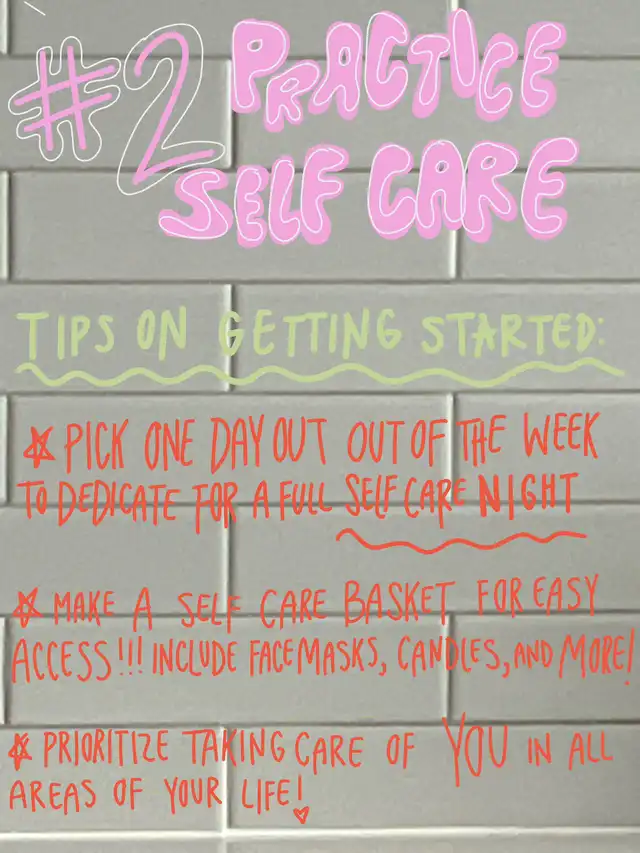 #2 PRACTICE
SELF CARE
TIPS ON GETTING STARTED:
PICK ONE DAY OUT OUT OF THE WEEK
TO DEDICATE FOR A FULL SELF CARE NIGHT
MAKE A SELF CARE BASKET FOR EASY
ACCESS!!! INCLUDE FACEMASKS, CANDLES, AND MORE!
PRIORITIZE TAKING CARE OF YOU IN ALL
AREAS OF YOUR LIFE!